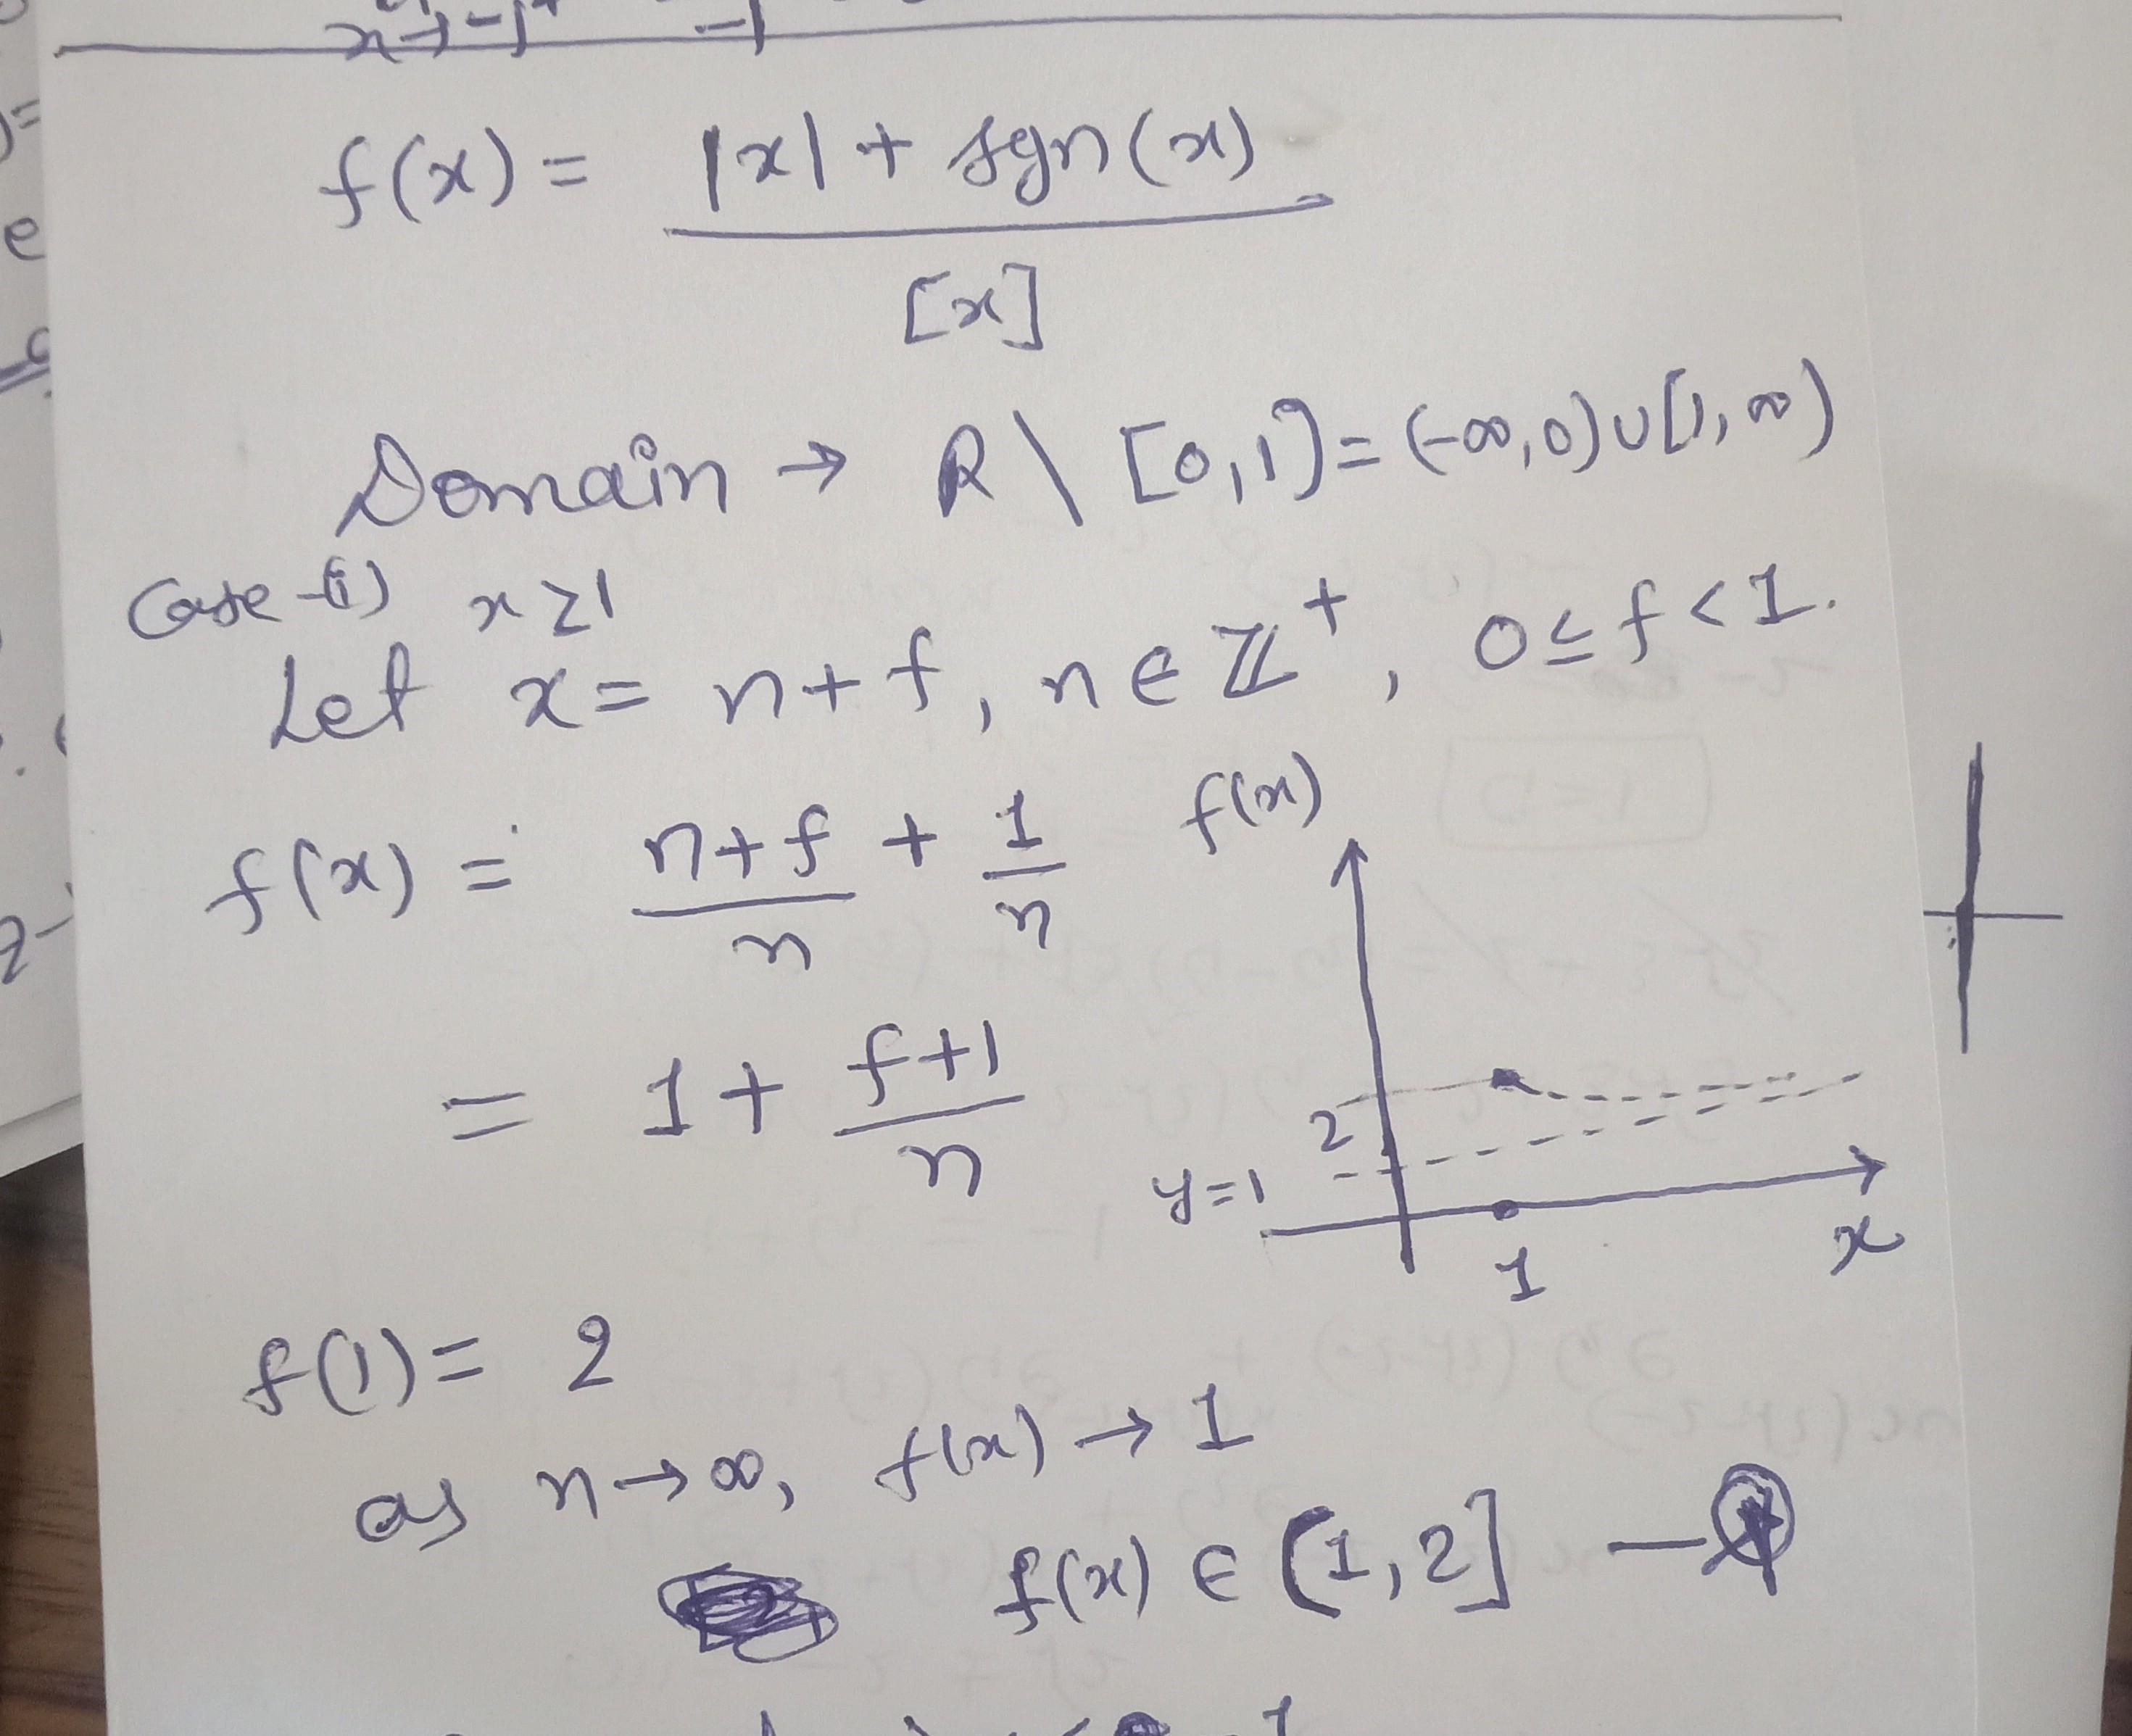 x→-1⁺ -1
f(x) = |x| + sgn(x)
[x]
Domain → R \ [0,1) = (-∞,0)∪[1,∞)
Case-(i) x≥1
Let x = n+f, n∈ℤ⁺, 0≤f<1.
f(x) = n+f/n + 1/n
= 1 + f+1/n
f(x)
2
y=1
1
x
f(1) = 2
as n→∞, f(x) → 1
f(x) ∈ (1,2] —